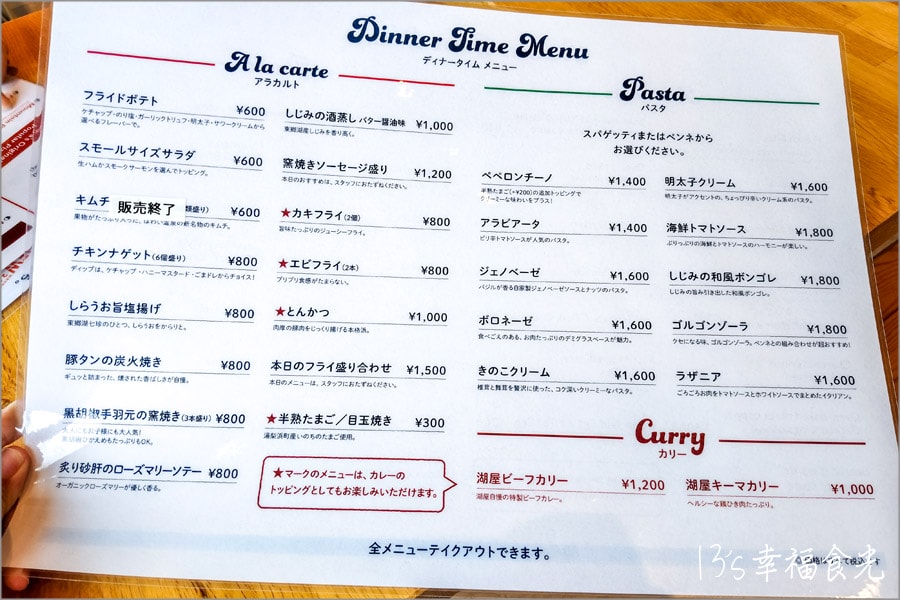 Dinner Time Menu
ディナータイム メニュー
A la carte
アラカルト
フライドポテト ¥600
ケチャップ・のり塩・ガーリックトリュフ・明太子・サワークリームから
選べるフレーバーで。
スモールサイズサラダ ¥600
生ハムかスモークサーモンを選んでトッピング。
キムチ 販売終了 盛り) ¥600
果物がたっぷり入った、はわい温泉の新名物のキムチ。
チキンナゲット(6個盛り) ¥800
ディップは、ケチャップ・ハニーマスタード・ごまドレからチョイス!
しらうお旨塩揚げ ¥800
東郷湖七珍のひとつ、しらうおをからりと。
豚タンの炭火焼き ¥800
ギュッと詰まった、燻された香ばしさが自慢。
黒胡椒手羽元の窯焼き(3本盛り) ¥800
大人にもお子様にも大人気!
黒胡椒ひかえめもたっぷりもOK。
炙り砂肝のローズマリーソテー ¥800
オーガニックローズマリーが優しく香る。
しじみの酒蒸し バター醤油味 ¥1,000
東郷湖産しじみを香り高く。
窯焼きソーセージ盛り ¥1,200
本日のおすすめは、スタッフにおたずねください。
★カキフライ(2個) ¥800
旨味たっぷりのジューシーフライ。
★エビフライ(2本) ¥800
プリプリ食感がたまらない。
★とんかつ ¥1,000
肉厚の豚肉をじっくり揚げる本格派。
本日のフライ盛り合わせ ¥1,500
本日のメニューは、スタッフにおたずねください。
★半熟たまご/目玉焼き ¥300
湯梨浜町産いのちのたまご使用。
★マークのメニューは、カレーの
トッピングとしてもお楽しみいただけます。
Pasta
パスタ
スパゲッティまたはペンネから
お選びください。
ペペロンチーノ ¥1,400
半熟たまご(+¥200)の追加トッピングで
クリーミーな味わいをプラス!
アラビアータ ¥1,400
ピリ辛トマトソースが人気のパスタ。
ジェノベーゼ ¥1,600
バジルが香る自家製ジェノベーゼソースとナッツのパスタ。
ボロネーゼ ¥1,600
食べごえのある、お肉たっぷりのデミグラスベースが魅力。
きのこクリーム ¥1,600
椎茸と舞茸を贅沢に使った、コク深いクリーミーなパスタ。
明太子クリーム ¥1,600
明太子がアクセントの、ちょっぴり辛いクリーム系のパスタ。
海鮮トマトソース ¥1,800
ぷりっぷりの海鮮とトマトソースのハーモニーが楽しい。
しじみの和風ボンゴレ ¥1,800
しじみの旨み引き出した和風ボンゴレ。
ゴルゴンゾーラ ¥1,800
クセになる味、ゴルゴンゾーラ。ペンネとの組み合わせが超おすすめ!
ラザニア ¥1,600
ごろごろお肉をトマトソースとホワイトソースでまとめたイタリアン。
Curry
カリー
湖屋ビーフカリー ¥1,200
湖屋自慢の特製ビーフカレー。
湖屋キーマカリー ¥1,000
ヘルシーな鶏ひき肉たっぷり。
全メニューテイクアウトできます。
13's幸福食光